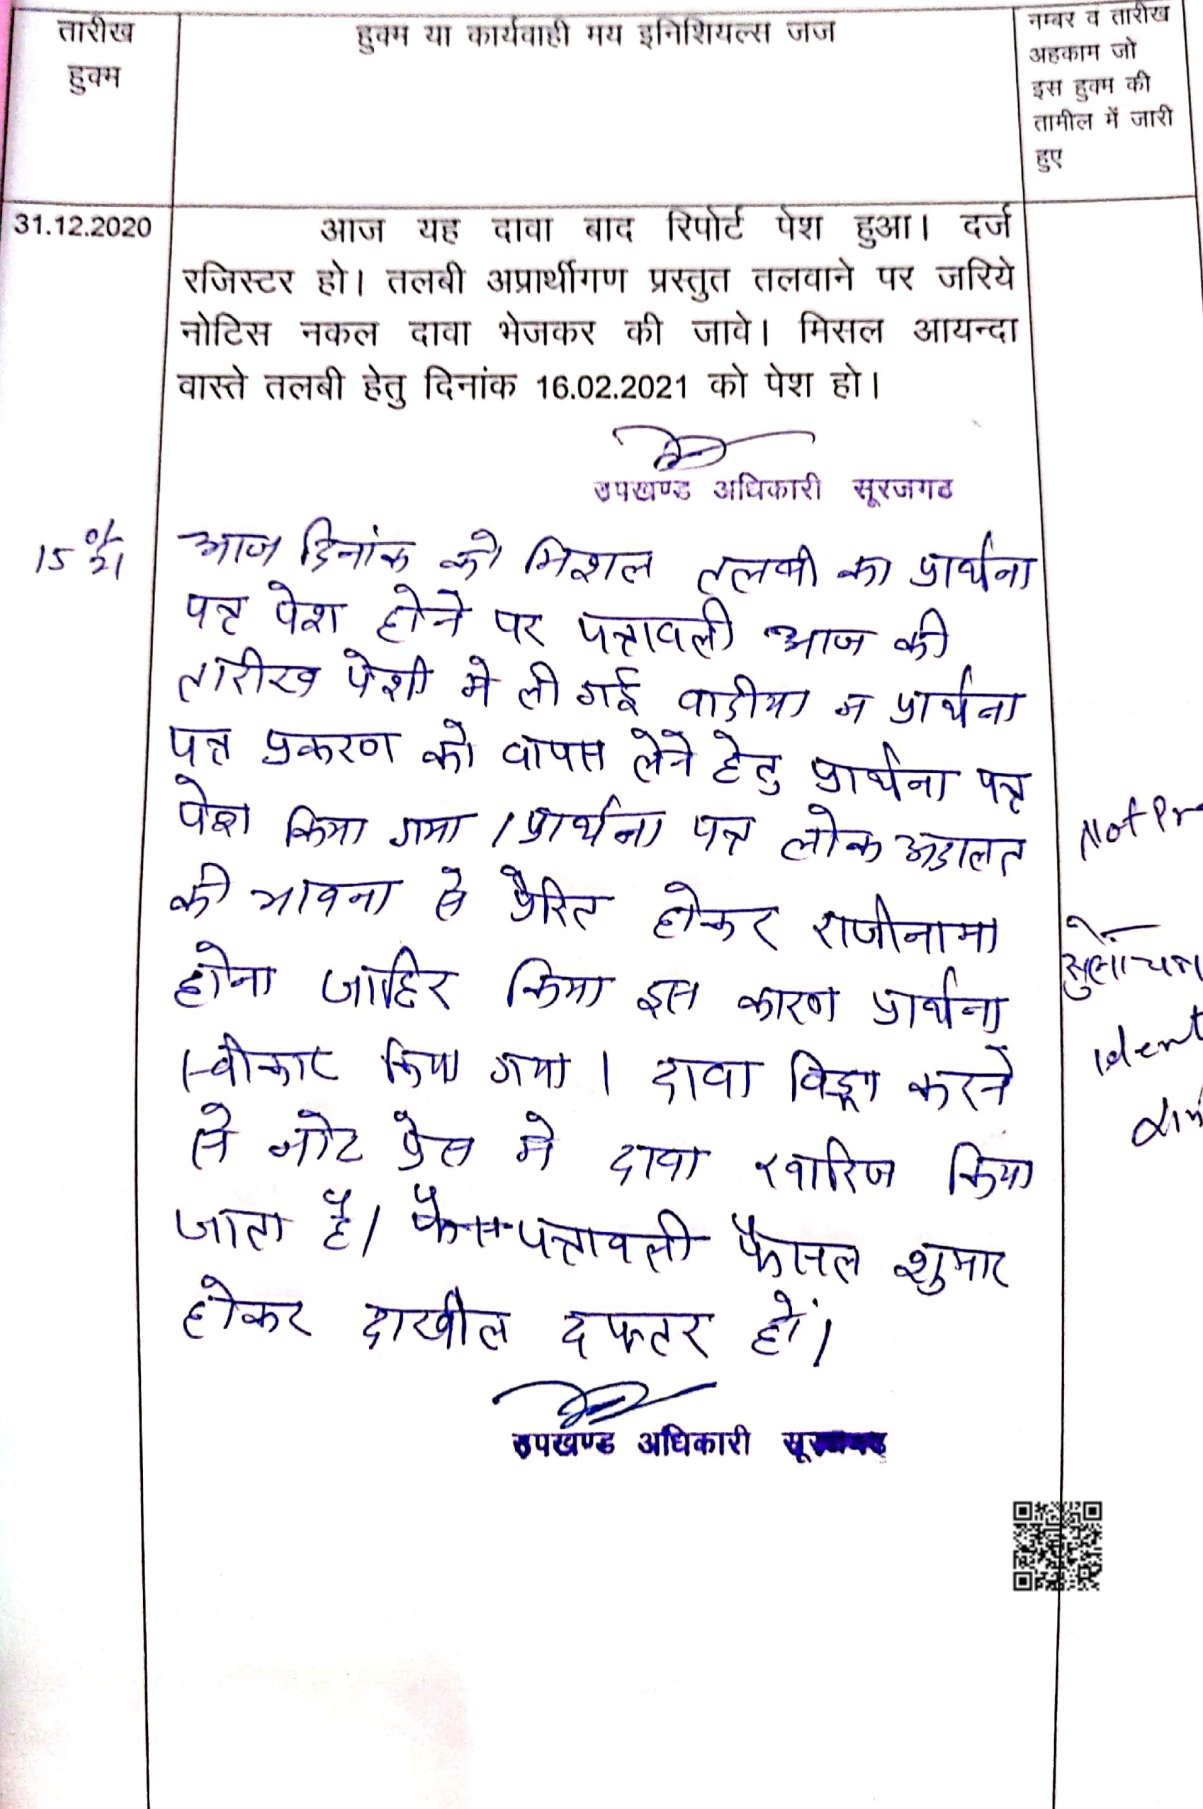 तारीख
हुक्म
हुक्म या कार्यवाही मय इनिशियल्स जज
नम्बर व तारीख
अहकाम जो
इस हुक्म की
तामील में जारी
हुए
31.12.2020
आज यह दावा बाद रिपोर्ट पेश हुआ। दर्ज
रजिस्टर हो। तलबी अप्रार्थीगण प्रस्तुत तलवाने पर जरिये
नोटिस नकल दावा भेजकर की जावे। मिसल आयन्दा
वास्ते तलबी हेतु दिनांक 16.02.2021 को पेश हो।
उपखण्ड अधिकारी सूरजगढ
15
आज दिनांक को मिशल तलबी का प्रार्थना
पत्र पेश होने पर पत्रावली आज की
तारीख पेशी मे ली गई वादीया न प्रार्थना
पत्र प्रकरण को वापस लेने हेतु प्रार्थना पत्र
पेश किया गया। प्रार्थना पत्र लोक अदालत
की भावना से प्रैरित होकर राजीनामा
होना जाहिर किया इस कारण प्रार्थना
स्वीकार किया गया। दावा विड्रा करने
से नोट प्रेस मे दावा खारिज किया
जाता है। पत्रावली फैसल शुमार
होकर दाखील दफ्तर हो।
उपखण्ड अधिकारी
Not Pr
सुलोचना
Ident